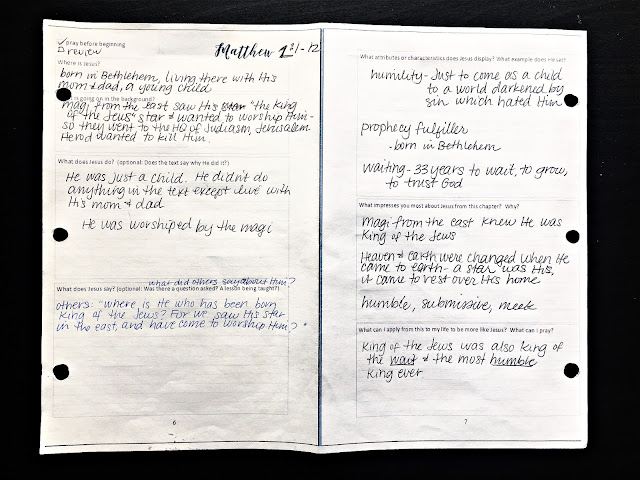 ✓ pray before beginning
□ review
Matthew 2:1-12
Where is Jesus?
born in Bethlehem, living there with His
mom & dad, a young child
is going on in the background?
magi from the east saw His star "the King
of the Jews" star & wanted to worship Him-
so they went to the HQ of Judiasm, Jerusalem.
Herod wanted to kill Him.
What does Jesus do? (optional: Does the text say why He did it?)
He was just a child. He didn't do
anything in the text except live with
His mom & dad
He was worshiped by the magi
what did others say about Him?
What does Jesus say? (optional: Was there a question asked? A lesson being taught?)
others: "where is He who has been born
King of the Jews? For we saw His star
in the east, and have come to worship Him"?
6
What attributes or characteristics does Jesus display? What example does He set?
humility- Just to come as a child
to a world darkened by
sin which hated Him
prophecy fulfiller
- born in Bethlehem
waiting- 33 years to wait, to grow,
to trust God
What impresses you most about Jesus from this chapter? Why?
magi from the east knew He was
King of the Jews
Heaven & earth were changed when He
came to earth- a star was His,
it came to rest over His home
humble, submissive, meek
What can I apply from this to my life to be more like Jesus? What can I pray?
King of the Jews was also King of
the wait & the most humble
King ever.
7